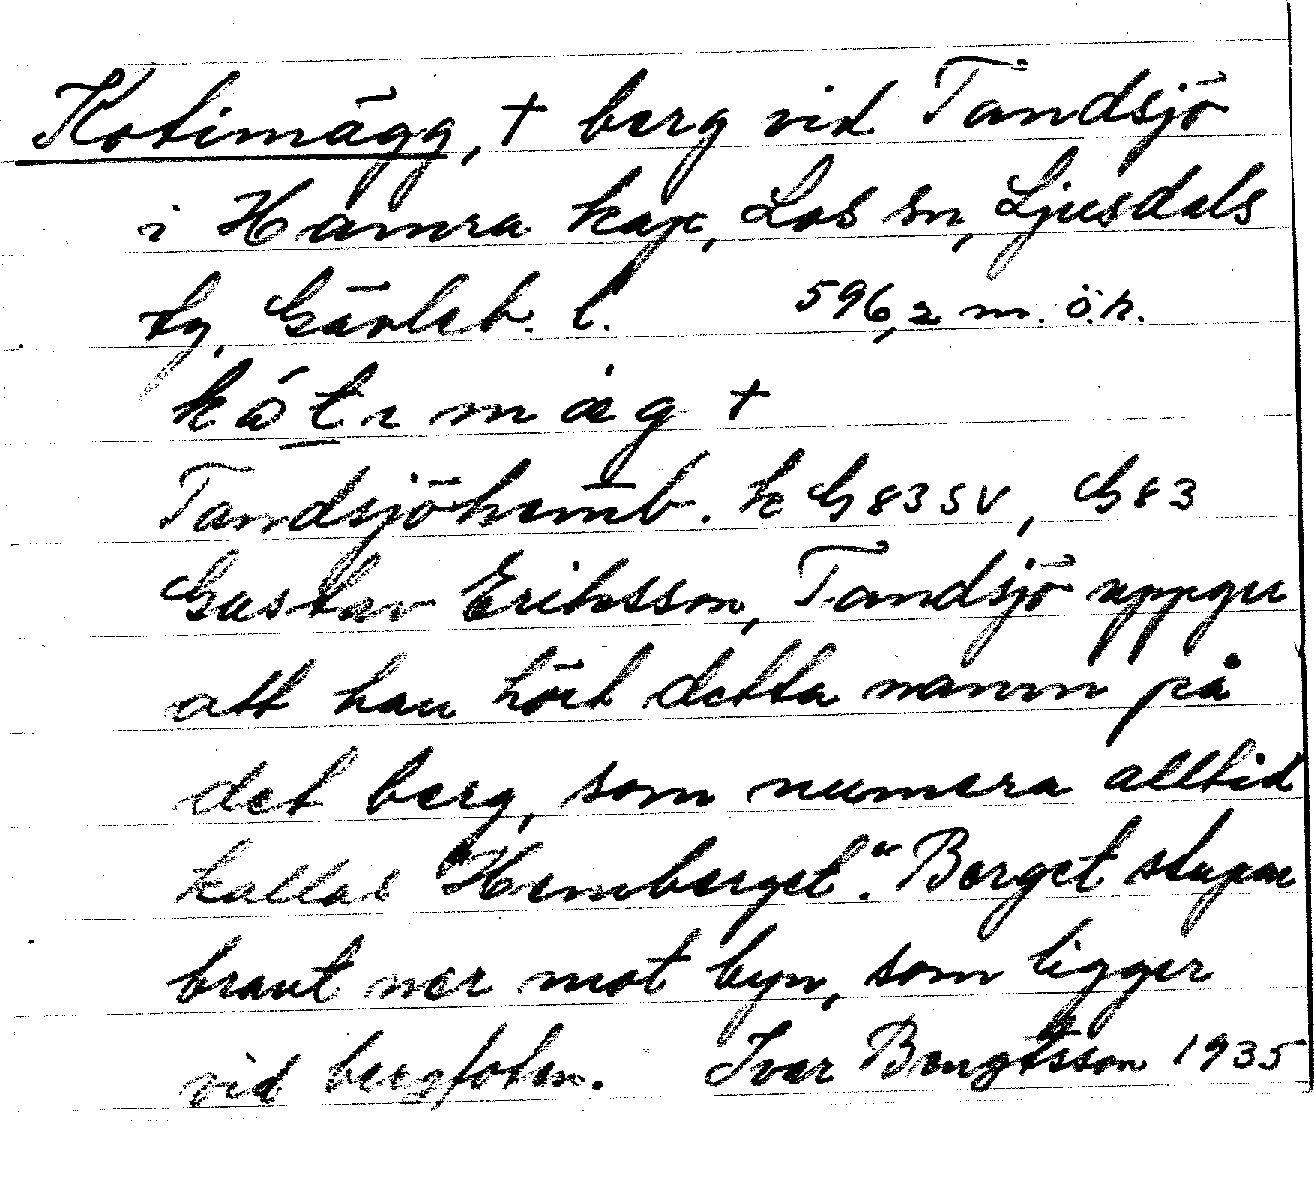 Kotimägg, + berg vid Tandsjö
i Hamra kap, Los sn, Ljusdals
tg, Gävleb. l. 596,2 m. ö. h.
kó̀tımæ̀g +
Tandsjöhemb. k G 83 SV, G 83
Gustav Eriksson, Tandsjö uppger
att han hört detta namn på
det berg, som numera alltid
kallas "Hemberget." Berget stupar
brant ner mot byn, som ligger
vid bergfoten. Ivar Bengtsson 1935